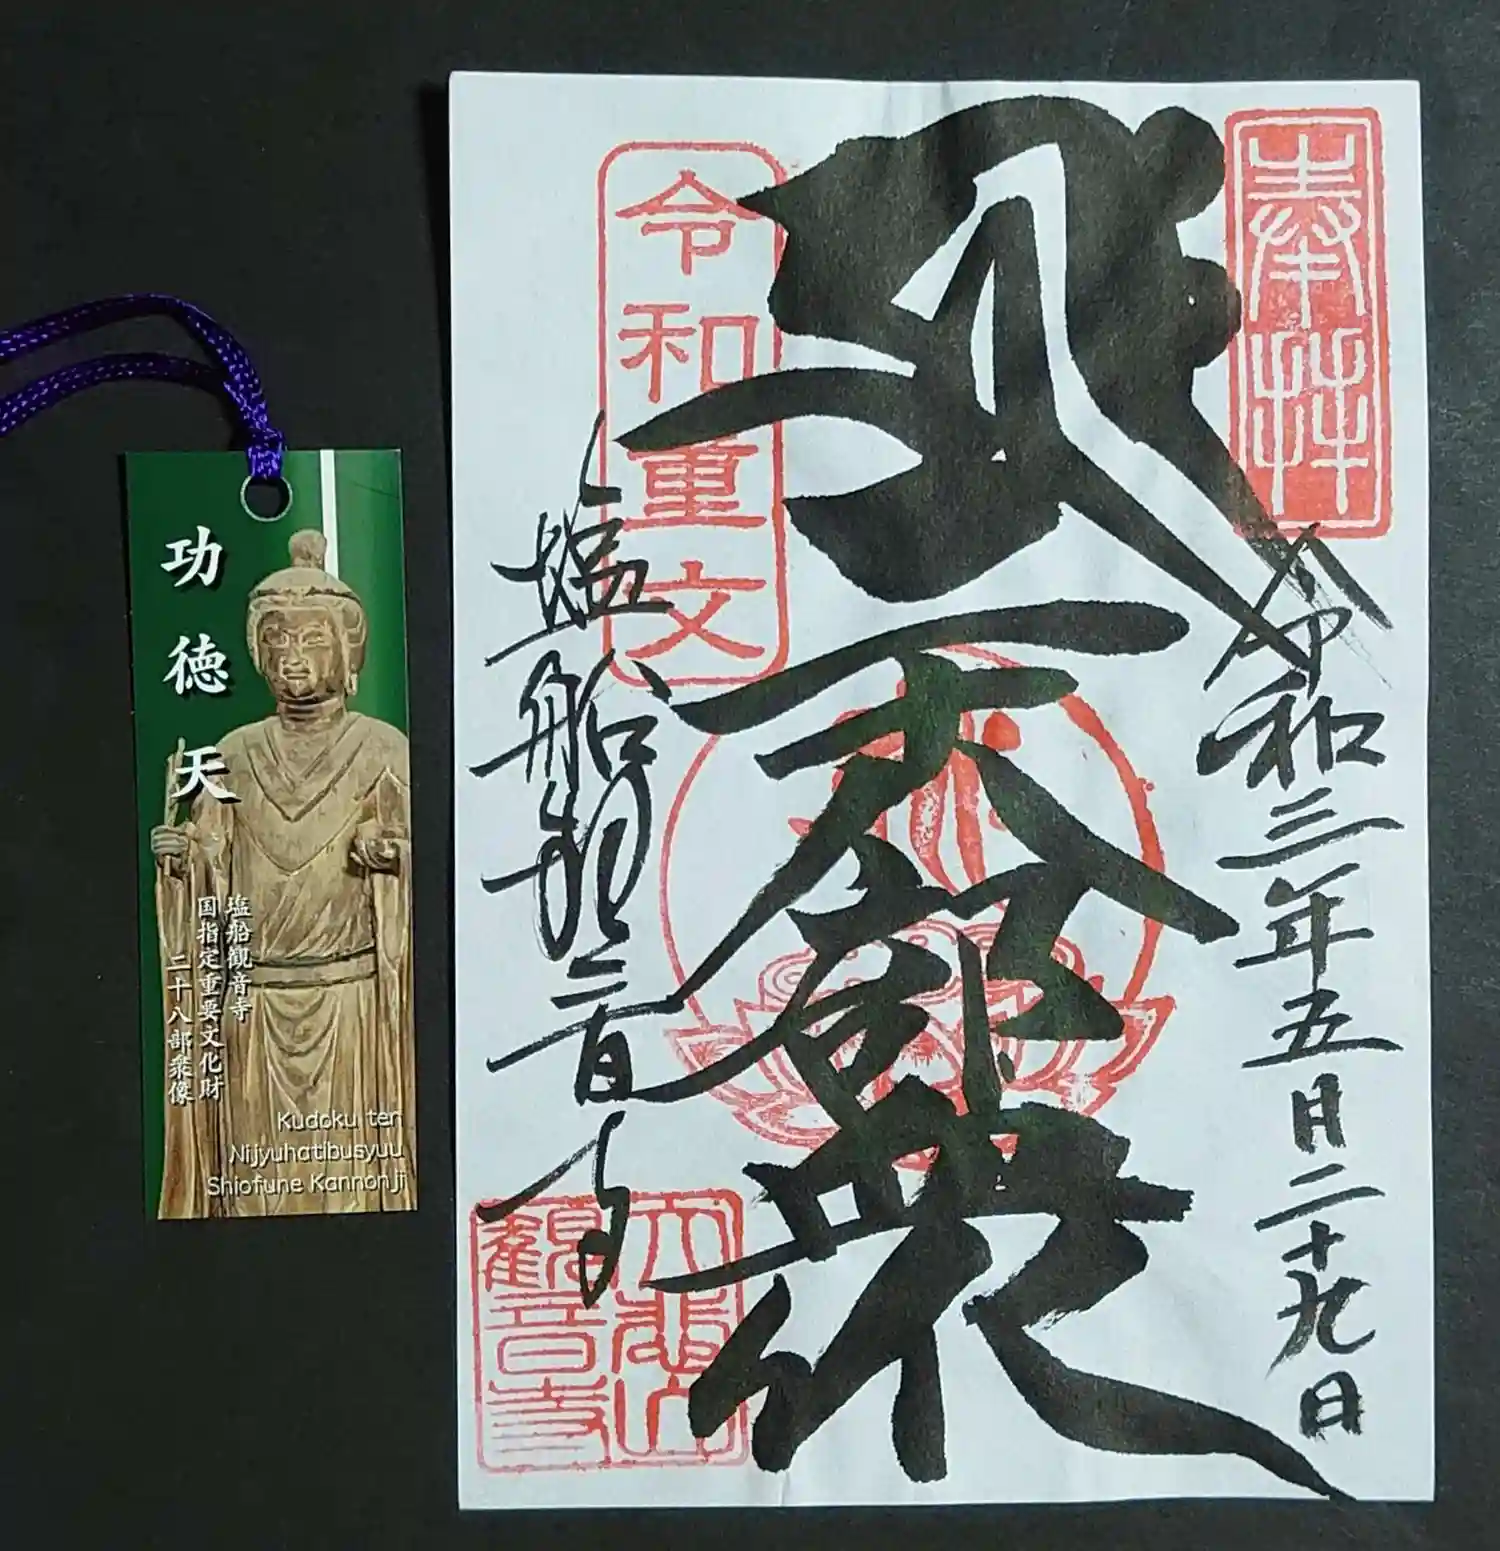 功徳天
塩船観音寺
国指定重要文化財
二十八部衆像
Kudoku ten
Nijyuhatibusyuu
Shiofune Kannonji
奉拝
令和三年五月二十九日
天部衆
令和重文
塩船観音寺
大悲山
觀音寺